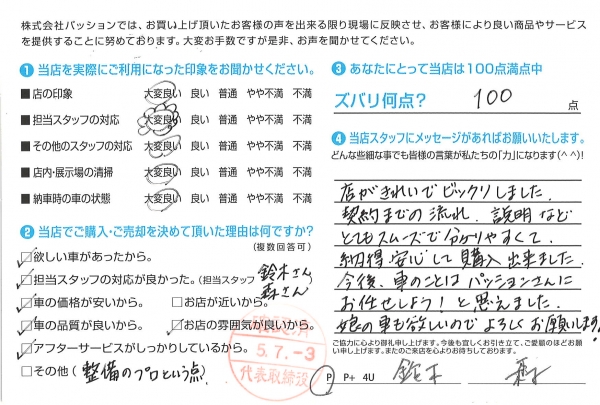 株式会社パッションでは、お買い上げ頂いたお客様の声を出来る限り現場に反映させ、お客様により良い商品やサービス
を提供することに努めております。大変お手数ですが是非、お声を聞かせてください。
❶ 当店を実際にご利用になった印象をお聞かせください。
■ 店の印象 大変良い 良い 普通 やや不満 不満
■ 担当スタッフの対応 大変良い 良い 普通 やや不満 不満
■ その他のスタッフの対応 大変良い 良い 普通 やや不満 不満
■ 店内・展示場の清掃 大変良い 良い 普通 やや不満 不満
■ 納車時の車の状態 大変良い 良い 普通 やや不満 不満
❷ 当店でご購入・ご売却を決めて頂いた理由は何ですか?
(複数回答可)
欲しい車があったから。
担当スタッフの対応が良かった。(担当スタッフ 鈴木さん
森さん
車の価格が安いから。 お店が近いから。
車の品質が良いから。 お店の雰囲気が良いから
アフターサービスがしっかりしているから。
その他( 整備のプロという点)
確認済
5.7.-3
代表取締役
❸ あなたにとって当店は100点満点中
ズバリ何点? 100 点
❹ 当店スタッフにメッセージがあればお願いいたします。
どんな些細な事でも皆様の言葉が私たちの「力」になります(^^)!
店がきれいでビックリしました。
契約までの流れ、説明など
とてもスムーズで分かりやすくて、
納得・安心して購入出来ました。
今後、車のことはパッションさんに
お任せしよう!と思えました。
娘の車も欲しいのでよろしくお願いします!
ご協力により御礼申し上げます。今後も宜しくお引き立て、ご愛顧のほどお願
い申し上げます。またのご来店を心よりお待ちしております。
P P+ 4U 鈴木 森